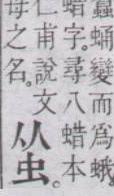 蛹變而爲蛾。
蜡字。尋八蜡本
仁甫說文
母之名。
从虫。